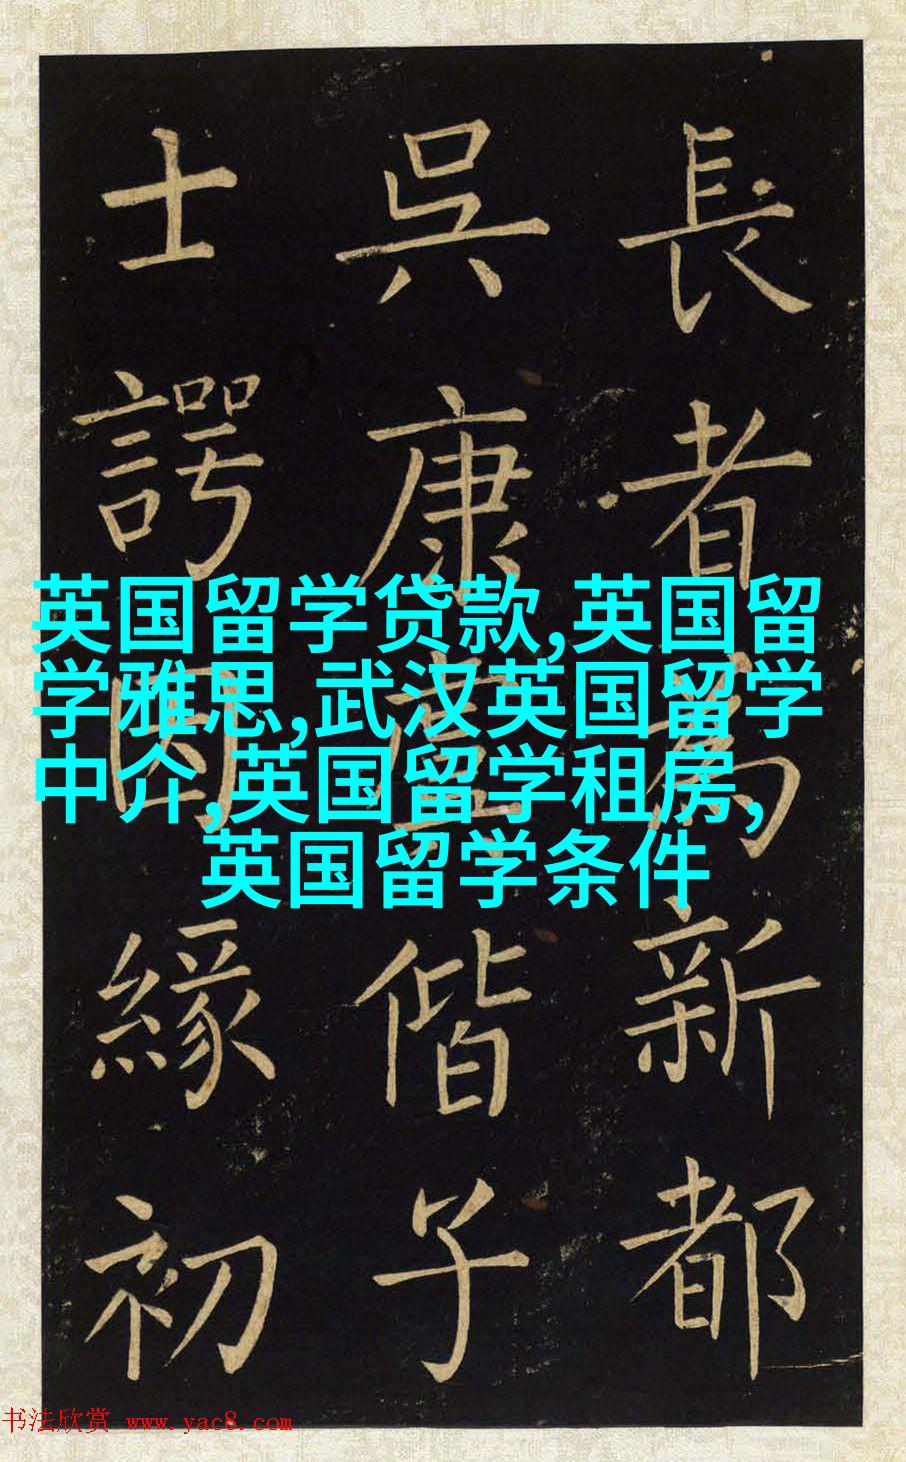 長者爲新都
吳康偕子
士諤因緣初
英国留学贷款,英国留
学雅思,武汉英国留学
中介,英国留学租房,
英国留学条件
书法欣赏 www.yac8.com